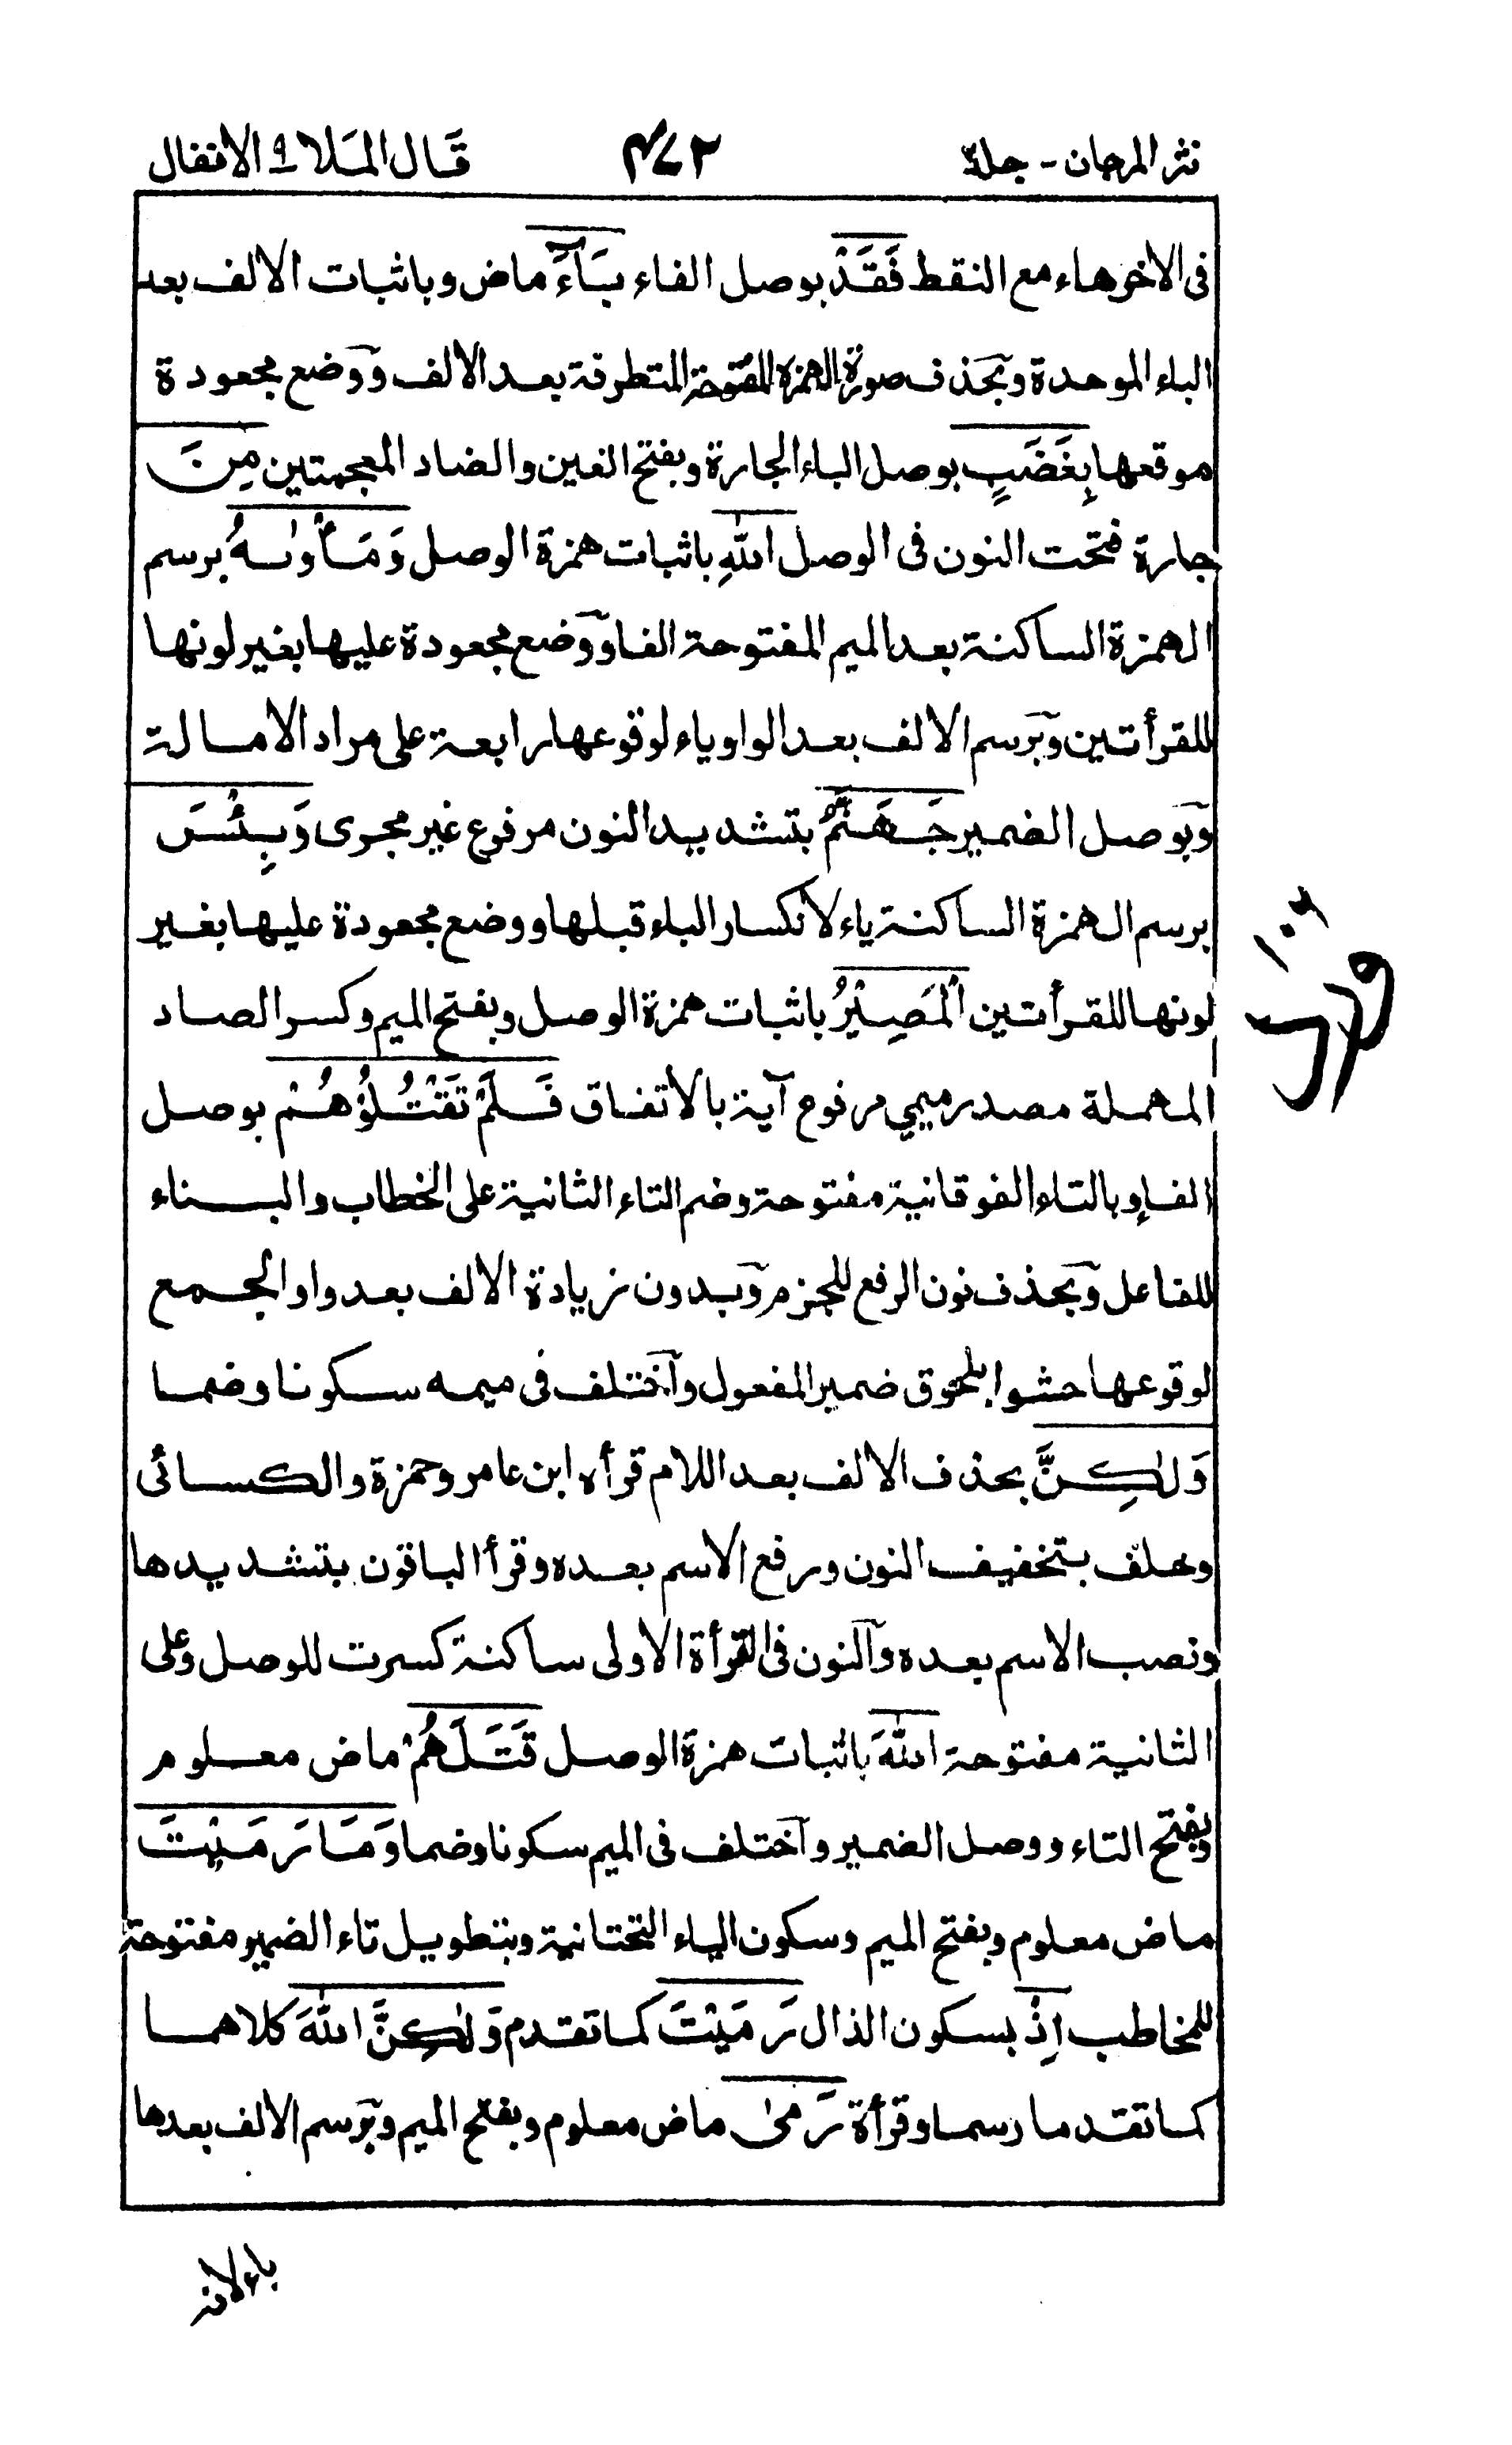 نثر المرجان - جلد ٢٧٤ قَال المَلا ٩ الانفال
فى الاخر هاء مع النقط فَقَدْ بوصل الفاء بَآءَ ماض وباثبات الالف بعد
الباء الموحدة وبحذف صورة الهمزة المفتوحة المتطرفة بعد الالف ووضع مجعودة
موقعها بِغَضَبٍ بوصل الباء الجارة وبفتح الغين والضاد المعجمتين مِنَ
جارة فتحت النون فى الوصل اللّٰهِ باثبات همزة الوصل وَمَأْوٰىهُ برسم
الهمزة الساكنة بعد الميم المفتوحة الفا ووضع مجعودة عليها بغير لونها
للقرأتين وبرسم الالف بعد الواو ياء لوقوعها رابعة على مراد الامالة
وبوصل الضمير جَهَنَّمُ بتشديد النون مرفوع غير مجرى وَبِئْسَ
برسم الهمزة الساكنة ياء لانكسار الباء قبلها ووضع مجعودة عليها بغير
لونها للقرأتين الْمَصِيْرُ باثبات همزة الوصل وبفتح الميم وكسر الصاد
المهملة مصدر ميمي مرفوع آية بالاتفاق فَلَمْ تَقْتُلُوْهُمْ بوصل
الفاء وبالتاء الفوقانية مفتوحة وضم التاء الثانية على الخطاب والبناء
للفاعل وبحذف نون الرفع للجزم وبدون زيادة الالف بعد واو الجمع
لوقوعها حشوا بلحوق ضمير المفعول واختلف فى ميمه سكونا وضما
وَلٰكِنَّ بحذف الالف بعد اللام قرأه ابن عامر وحمزة والكسائى
وخلف بتخفيف النون ورفع الاسم بعده وقرأ الباقون بتشديدها
ونصب الاسم بعده والنون فى القرأة الاولى ساكنة كسرت للوصل وعلى
الثانية مفتوحة اللّٰهَ باثبات همزة الوصل قَتَلَهُمْ ماض معلوم
وبفتح التاء ووصل الضمير واختلف فى الميم سكونا وضما وَمَا رَمَيْتَ
ماض معلوم وبفتح الميم وسكون الياء التحتانية وبتطويل تاء الضمير مفتوحة
للمخاطب اِذْ بسكون الذال رَمَيْتَ كما تقدم وَلٰكِنَّ اللّٰهَ كلاهما
كما تقدما رسما وقرأة رَمىٰ ماض معلوم وبفتح الميم وبرسم الالف بعدها
ياء لانه